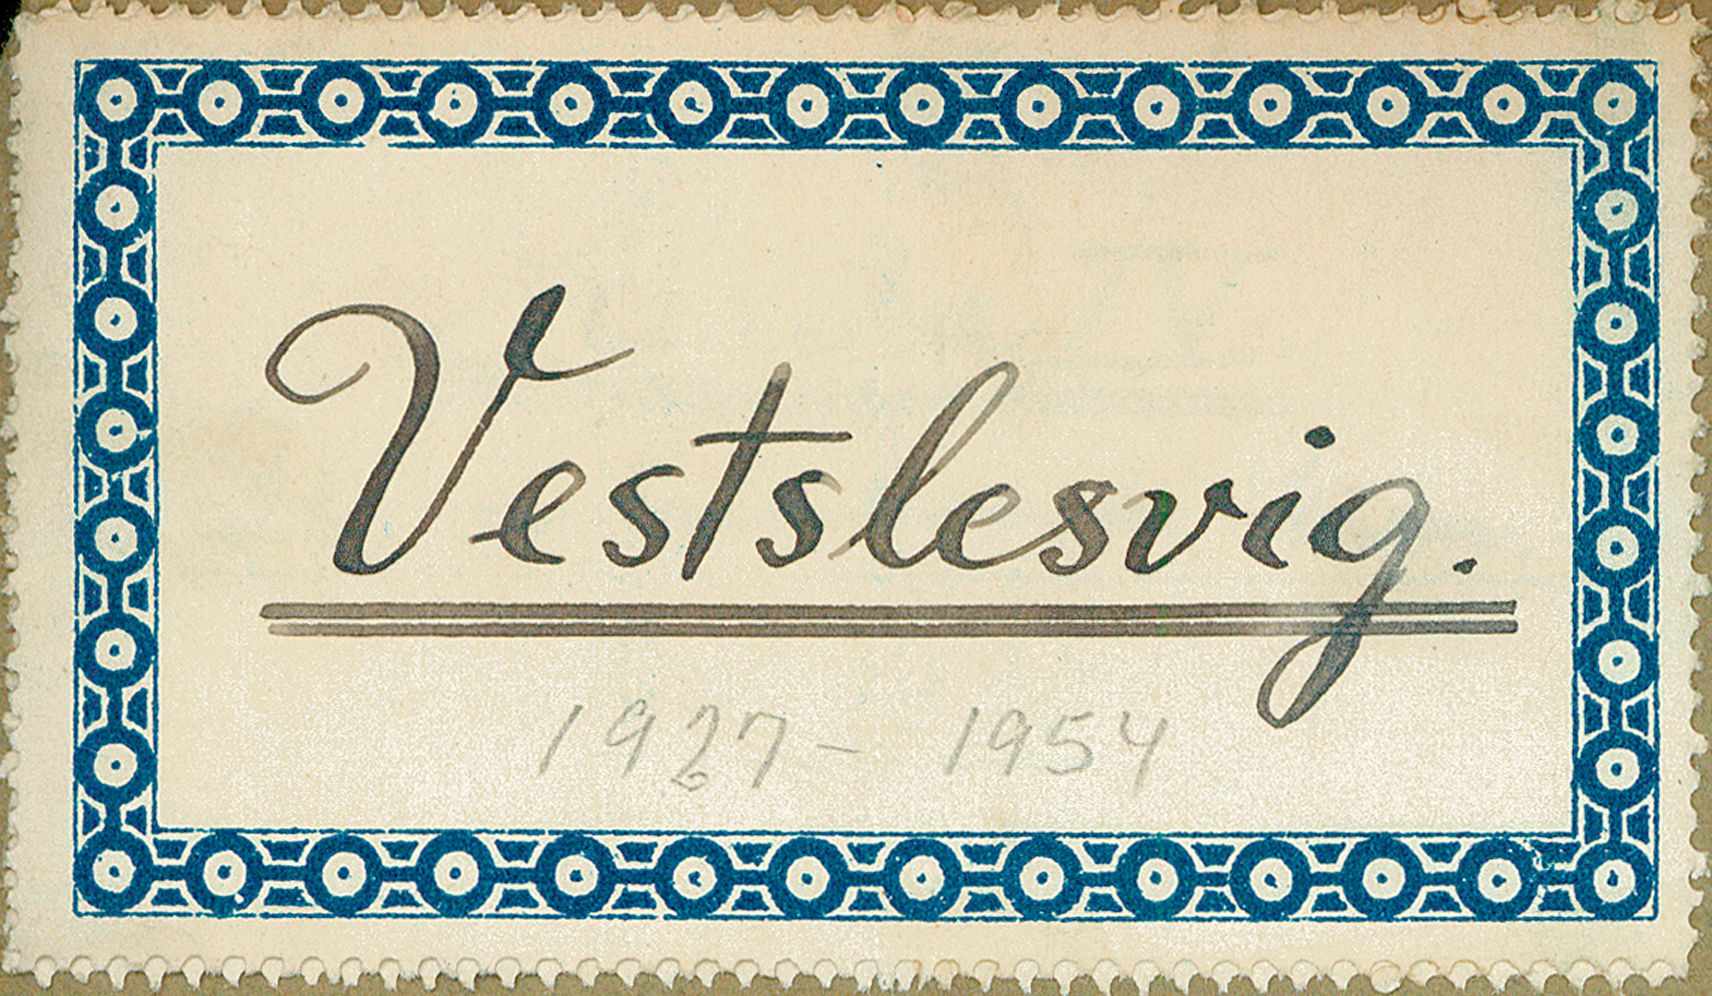 Vestslesvig.
1927- 1954